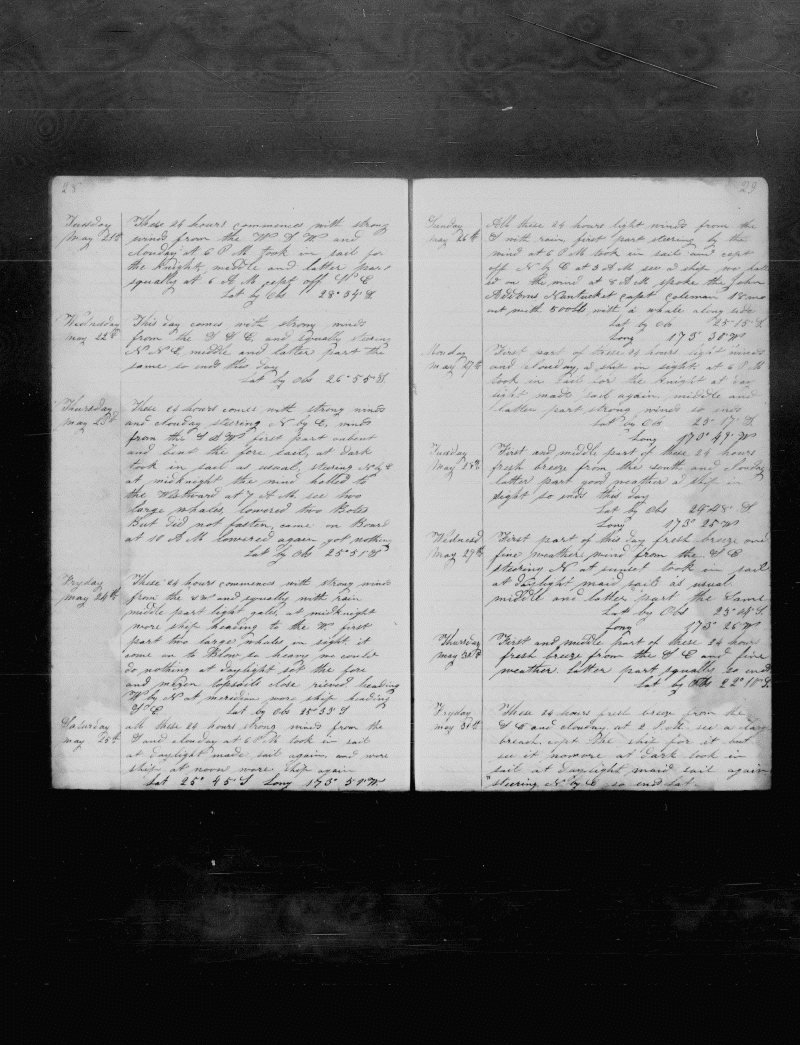 28
Tuesday
May 21st
These 24 hours commences with strong
winds from the W S W and
cloudy at 6 P M took in sail for
the Knight, middle and latter part
squally at 6 A M kept off N E
Lat by Obs 28° 34' S
Wednesday
May 22d
This day comes with strong winds
from the and squally steering
N N E middle and latter part the
same so ends this day
Lat by Obs 26° 55' S
Thursday
May 23d
These 24 hours comes with strong winds
and clouday steering N by E, winds
from the S & W first part unbent
and bent the fore sail, at dark
took in sail as usual, steering N by E
at midknight the wind halled to
the Westward at 7 A M. see two
large whales, lowered two Botes
But did not fasten, came on Board
at 10 A M lowered again got nothing
Lat by Obs 25° 51' S
Fryday
May 24th
These 24 hours commences with strong winds
from the and squally with rain
middle part light gales, at midknight
wore ship heading to the W. first
part two large whales in sight it
come on to Blow so heavy we could
do nothing at daylight set the fore
and mizen topsails close riefed heading
W by N at meridian wore ship heading
Lat by Obs 25° 33' S
Saturday
May 25th
all these 24 hours strong winds from the
S and clouday at 6 P M took in sail
at daylight made sail again, and wore
ship, at noon wore ship again
Lat 25° 45' S Long 173° 50' W
29
Sunday
May 26th
All these 24 hours light winds from the
S with rain, first part steering by the
wind at 6 P M took in sail and kept
off N by E at 3 A M see a ship, we hall
ed on the wind at 8 A M spoke the John
Addams Nantucket capt Coleman 18 mo
out with 500bbls with a whale along side
Lat by Ob 25° 15' S.
Long 173° 30' W
Monday
May 27th
First part of these 24 hours light winds
and clouday, a ship in sight, at 6 P M
took in sail for the Knight at day
light made sail again, middle and
latter part strong winds so ends
Lat by Ob 25° 17' S.
Long 173° 47' W
Tuesday
May 28th
First and middle part of these 24 hours
fresh breeze from the south and clouday
latter part good weather a ship in
sight so ends this day
Lat by Obs 24° 48' S
Long 173° 25' W
Wednesd
May 29th
First part of this day fresh breeze and
fine weather, wind from the S E
steering N at sunset took in sail
at daylight maid sail as usual
middle and latter part the Same
Lat by Obs 23° 4' S.
Long 173° 25' W
Thursday
May 30th
First and middle part of these 24 hours
fresh breeze from the S E and fine
weather latter part squally so ends
Lat by Obs 22° 10' S.
Fryday
May 31st
These 24 hours fresh breeze from the
S E and clouday, at 2 P M see a
breach, kept the ship for it but
see it nomore at dark took in
sail at daylight maid sail again
steering N by E so ends Lat